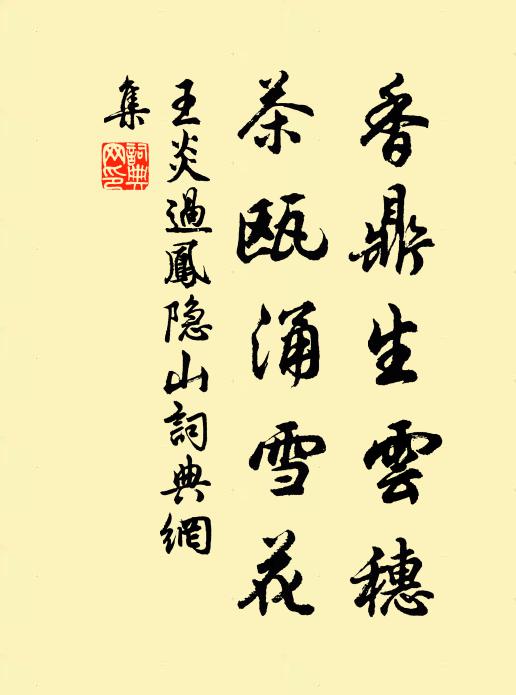 香鼎生雲穗
茶甌涌雪花
王炎過鳳隐山詞典網
集
詞典網印